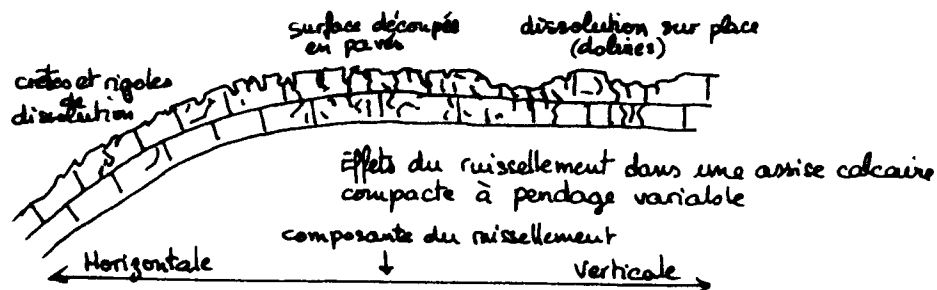 surface découpée
en pavés
dissolution sur place
(dolines)
crêtes et rigoles
de
dissolution
Effets du ruissellement dans une assise calcaire
compacte à pendage variable
composante du ruissellement
Horizontale
Verticale